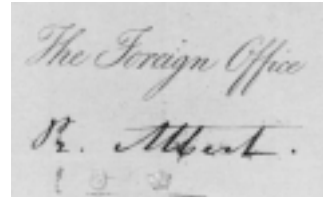 The Foreign Office
Pr. Albert.